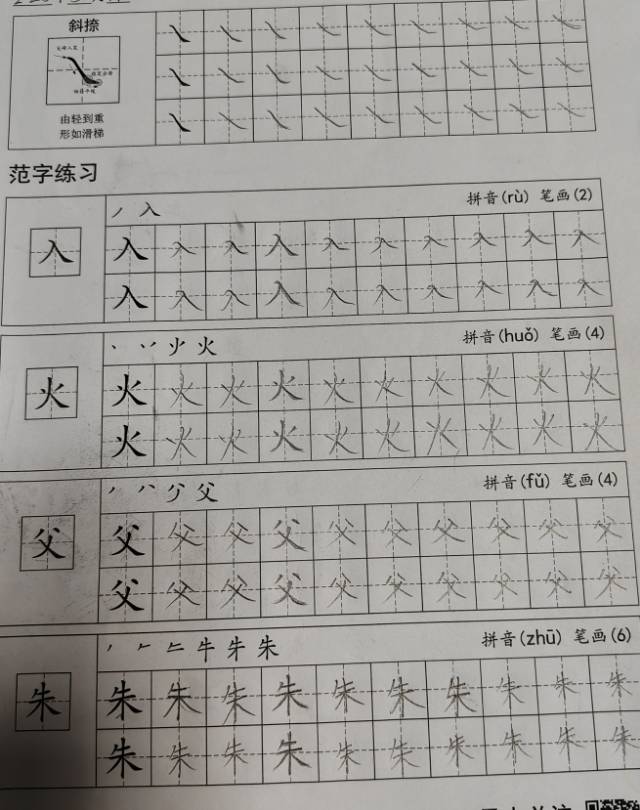 斜捺
由轻到重
形如滑梯
范字练习
丿 入
拼音(rù) 笔画(2)
入 入 入 入 入 入 入 入 入 入 入
入 入 入 入 入 入 入 入 入 入
丶 丷 少 火
拼音(huǒ) 笔画(4)
火 火 火 火 火 火 火 火 火 火 火
火 火 火 火 火 火 火 火 火 火
拼音(fǔ) 笔画(4)
父 父 父 父 父 父 父 父 父 父 父
父 父 父 父 父 父 父 父 父 父
牛 牛 朱
拼音(zhū) 笔画(6)
朱 朱 朱 朱 朱 朱 朱 朱 朱 朱 朱
朱 朱 朱 朱 朱 朱 朱 朱 朱 朱